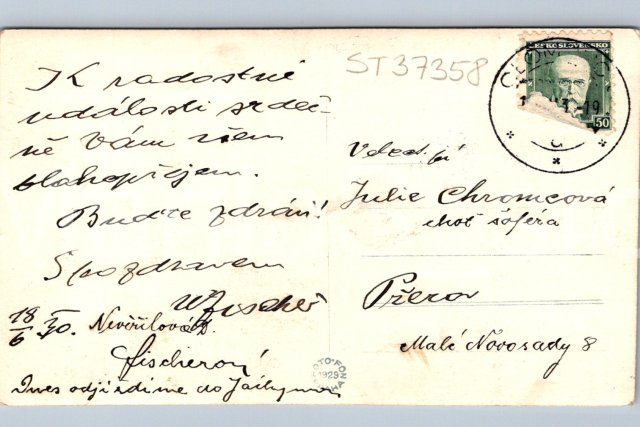 K radostné
události srdeč-
ně Vám všem
blahopřejem.
Buďte zdrávi!
S pozdravem
Fischer
18/6 30. Nevěřilova
Fischerovi
Dnes odjíždíme do
ST37358
ČESKOSLOVENSKO
50
OLOM
Velect. pí
Julie Chromcová
choť šoféra
Přerov
Malé Novosady 8
FOTO-FON
1929